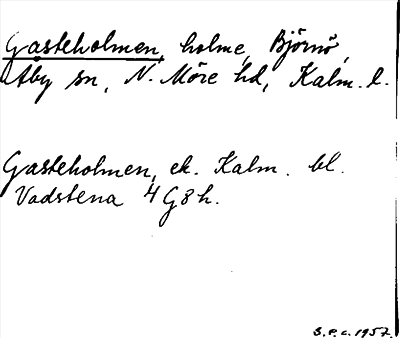 Gåsteholmen, holme, Björnö,
Åby sn, N. Möre hd, Kalm. l.
Gåsteholmen, ek. Kalm. bl.
Vadstena 4 G 8 h.
S.P.C. 1957.